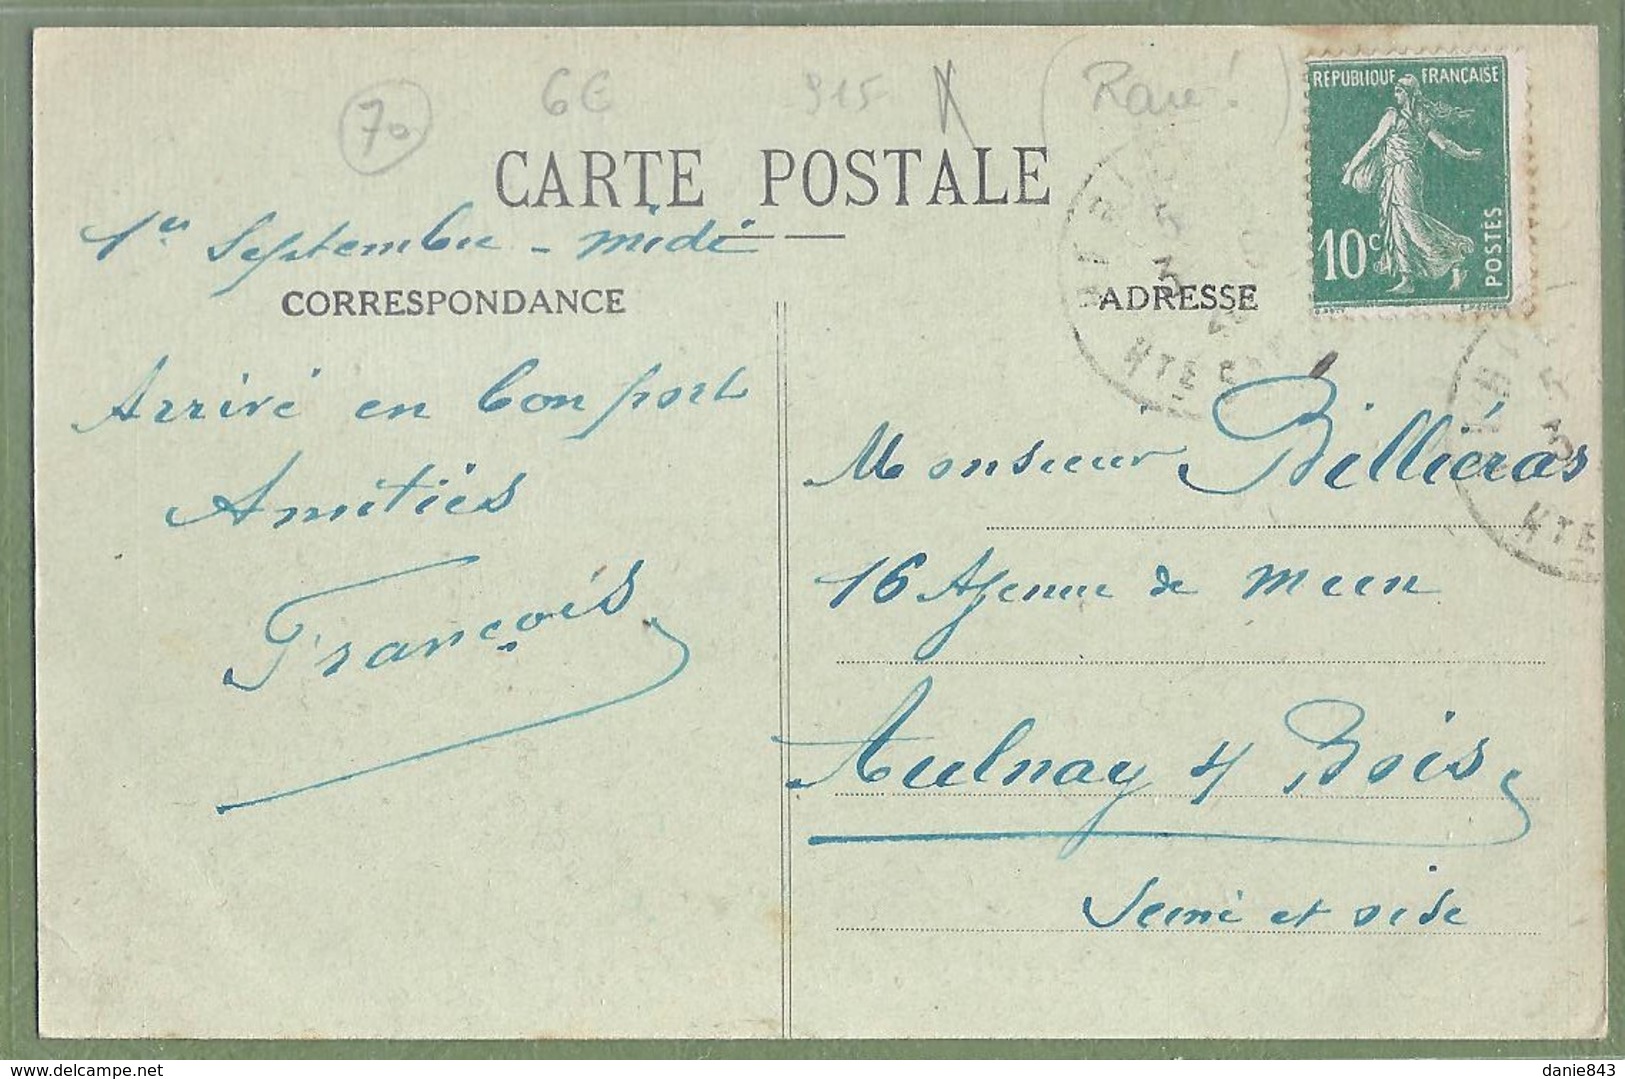 70
6€
915
(Rare!)
REPUBLIQUE FRANÇAISE
10c
POSTES
CARTE POSTALE
1er Septembre - midi
CORRESPONDANCE
ADRESSE
HTE
Arrivé en bon port
Amitiés
François
Monsieur Billiéras
16 Avenue de
Aulnay s/ Bois
Seine et oise
HTE
danie843